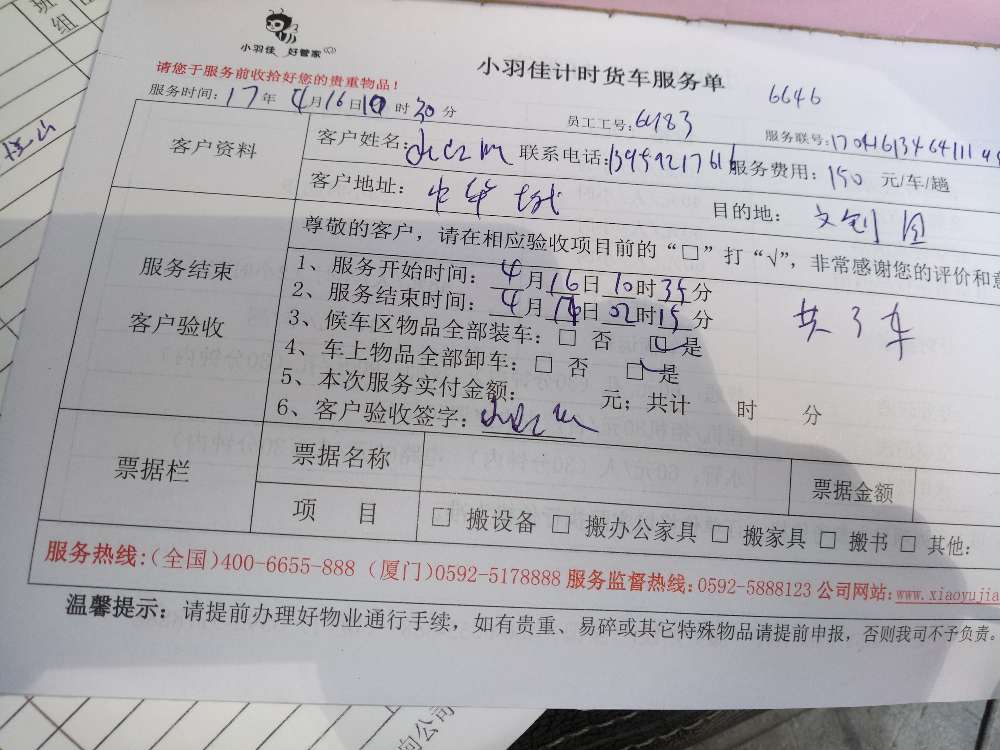 班
组
小羽佳 好管家
小羽佳计时货车服务单
6646
请您于服务前收拾好您的贵重物品！
服务时间：17年4月16日10时30分
员工工号：6483
服务联号：1704161346411
客户资料
客户姓名：
联系电话：13959217616
服务费用：150 元/车/趟
客户地址：
目的地：文创园
服务结束
客户验收
尊敬的客户，请在相应验收项目前的“□”打“√”，非常感谢您的评价和意
1、服务开始时间：4月16日10时35分
2、服务结束时间：4月16日02时15分
共3车
3、候车区物品全部装车：□ 否 ☑ 是
4、车上物品全部卸车：□ 否 ☑ 是
5、本次服务实付金额： 元；共计 时 分
6、客户验收签字：
票据栏
票据名称
票据金额
项 目
□ 搬设备 □ 搬办公家具 □ 搬家具 □ 搬书 □ 其他：
服务热线:（全国）400-6655-888（厦门）0592-5178888 服务监督热线：0592-5888123 公司网站：www.xiaoyujia
温馨提示：请提前办理好物业通行手续，如有贵重、易碎或其它特殊物品请提前申报，否则我司不予负责。
向公司